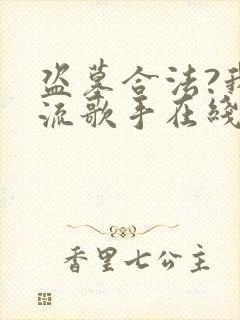 盗墓合法?我
流歌手在线
香里七公主